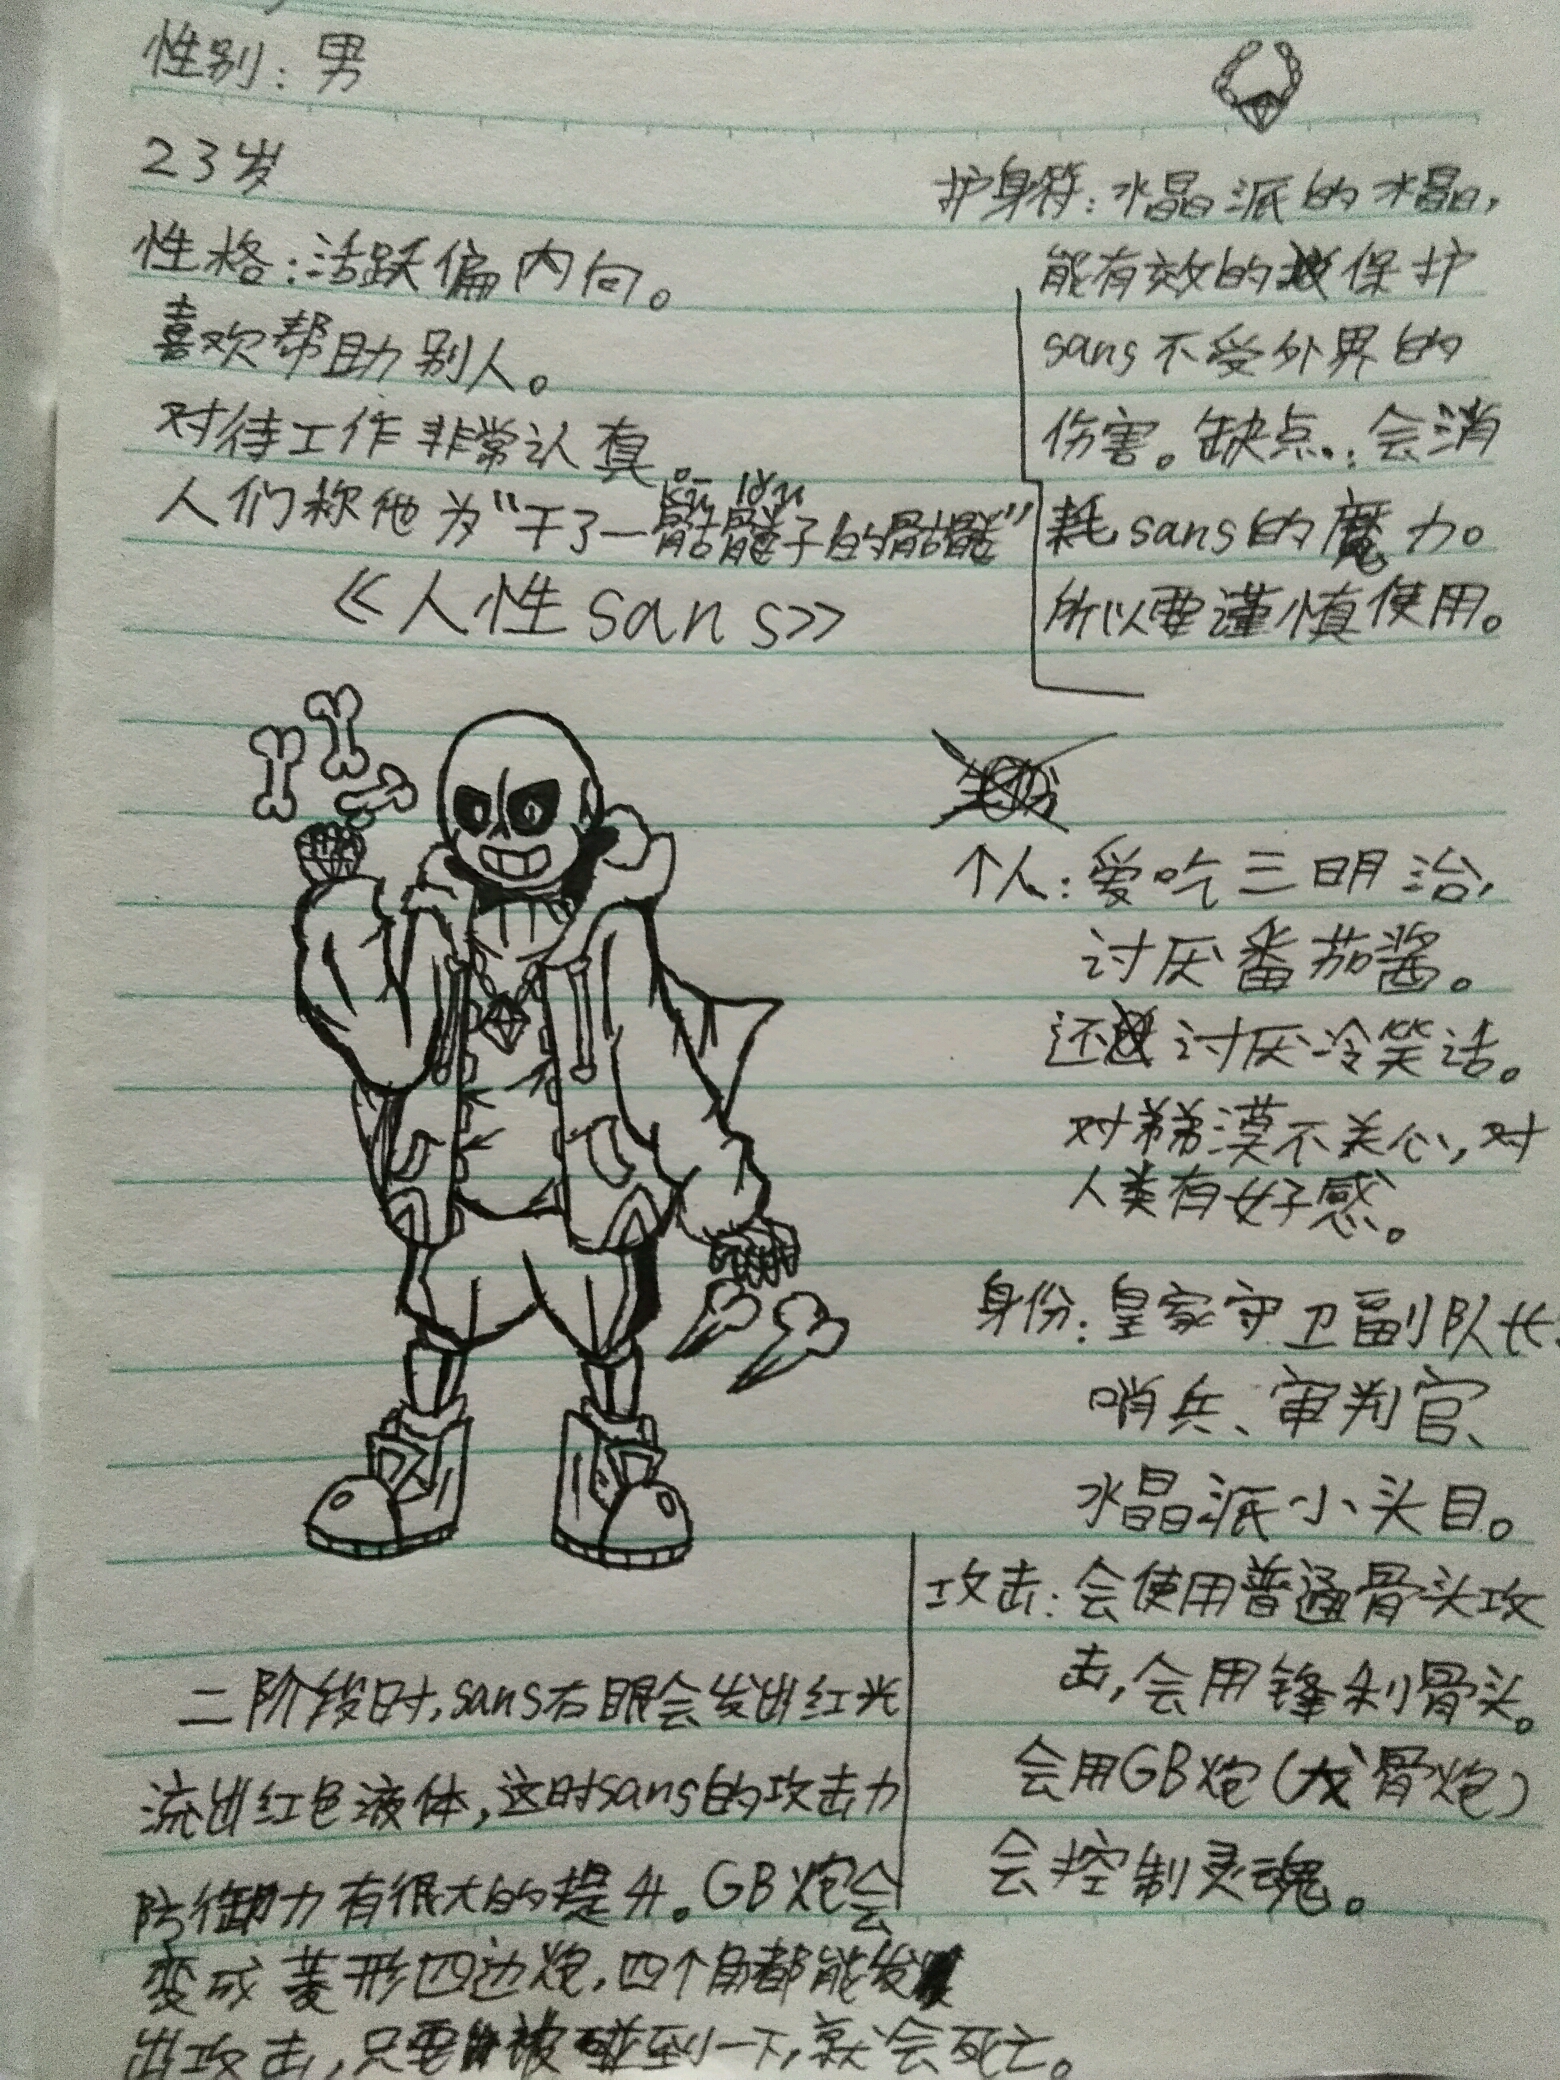 性别：男
23岁
性格：活跃偏内向。
喜欢帮助别人。
对待工作非常认真。
kū lóu
人们称他为“干了一骷髅子的骷髅”
《人性sans》
护身符：水晶派的水晶，
能有效的保护
sans不受外界的
伤害。缺点：会消
耗sans的魔力。
所以要谨慎使用。
个人：爱吃三明治，
讨厌番茄酱。
还讨厌冷笑话。
对漠不关心，对
人类有好感。
身份：皇家守卫副队长、
哨兵、审判官、
水晶派小头目。
攻击：会使用普通骨头攻
击，会用锋利骨头。
会用GB炮（龙骨炮）
会控制灵魂。
二阶段时，sans右眼会发出红光
流出红色液体，这时sans的攻击力
防御力有很大的提升。GB炮会
变成菱形四边炮，四个角都能发
出攻击，只要被碰到一下，就会死亡。